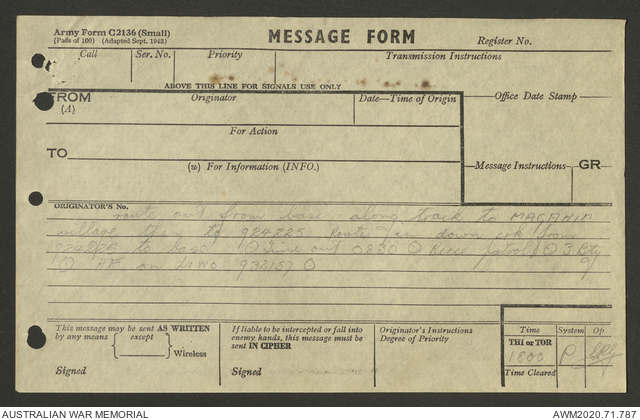 Army Form C2136 (Small)
(Pads of 100) (Adapted Sept. 1943)
MESSAGE FORM
Register No.
Call
Ser. No.
Priority
Transmission Instructions
ABOVE THIS LINE FOR SIGNALS USE ONLY
FROM
(A)
Originator
Date—Time of Origin
Office Date Stamp
For Action
TO
(w) For Information (INFO.)
Message Instructions
GR
ORIGINATOR'S No.
route out from base along track to
village then to 924225 Route down crk from
to base Time out 0830 Recce patrol 3
on 932157
This message may be sent AS WRITTEN
by any means except
Wireless
Signed
If liable to be intercepted or fall into
enemy hands, this message must be
sent IN CIPHER
Signed
Originator's Instructions
Degree of Priority
Time
System
Op
THI or TOR
1800
P
Time Cleared
AUSTRALIAN WAR MEMORIAL
AWM2020.71.787